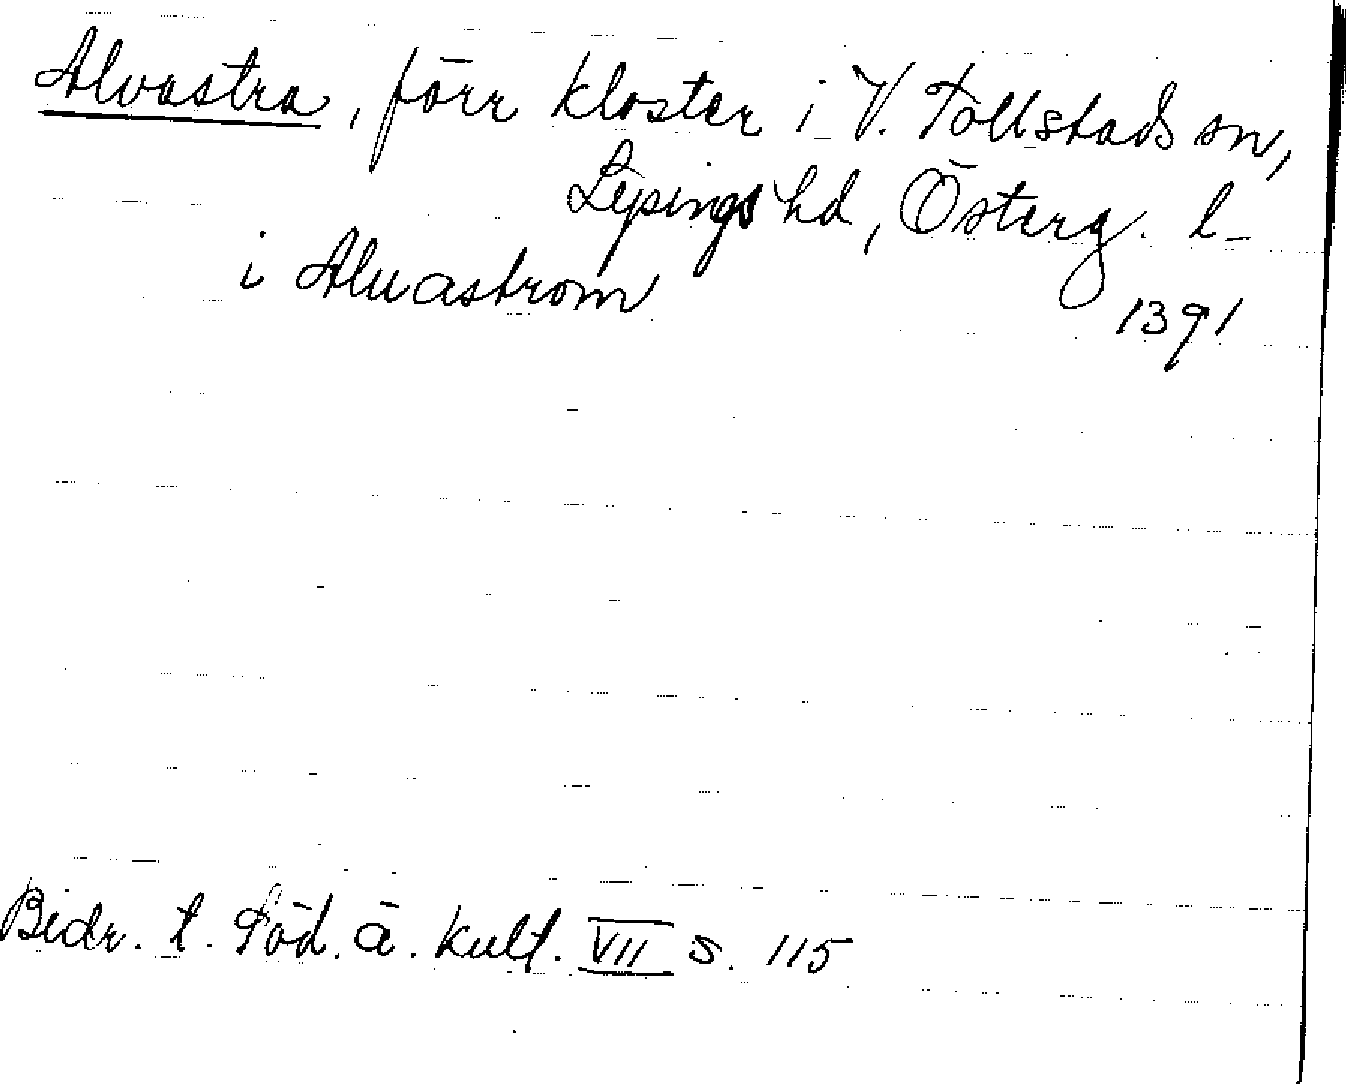 Alvastra, förr kloster i V. Tollstads sn,
Lysings hd, Österg. l-
i Alvastrom
1391
Bidr. t. Söd. ä. kult. VII s. 115